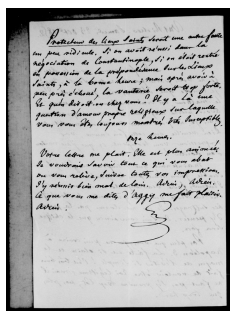 Protecteur des Lieux Saints serait une autre faute
un peu ridicule. Si on avait réussi dans la
négociation de Constantinople, si on était resté
en possession de la prépondérance sur les Lieux
Saints, à la bonne heure; mais après avoir
peu près échoué, la vanterie serait trop forte.
Le qu'en dirait-on chez vous? Il y a là une
question d'amour propre religieux sur laquelle
vous vous êtes toujours montrés très susceptibles
Onze heures.
Votre lettre me plait. Elle est plus animée.
Je voudrais savoir tout ce qui vous abat
ou vous relève, suivre toutes vos impressions.
J'y réussis bien mal de loin. Adieu, Adieu.
Ce que vous me dites d'Aggy me fait plaisir.
Adieu.